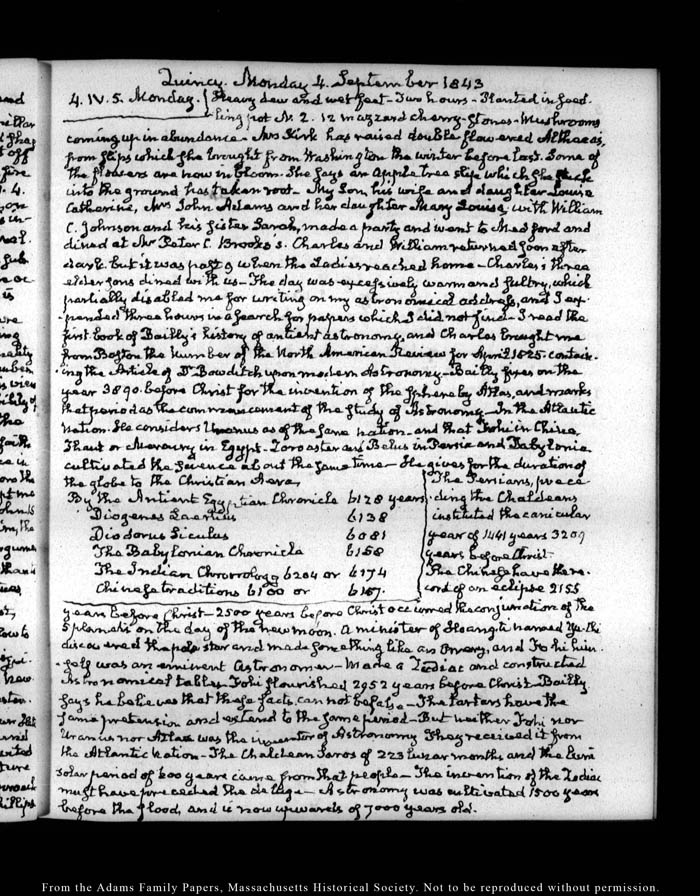 Quincy. Monday 4. September 1843
4. IV. 5. Monday. Heavy dew and wet feet - Two hours - Planted in seed-
ling pot N. 2. 12 mazzard cherry-stones - Mushrooms
coming up in abundance - Mrs Kirk has raised double flowered Althaeas,
from slips which she brought from Washington the winter before last. Some of
the flowers are now in bloom. She says an apple tree slip which she stuck
into the ground has taken root - My Son, his wife and daughter Louisa
Catherine, Mrs John Adams and her daughter Mary Louisa, with William
C. Johnson and his sister Sarah, made a party and went to Medford and
dined at Mr Peter C. Brooks's. Charles and William returned soon after
dark but it was past 9 when the Ladies reached home - Charles's three
elder sons dined with us - The day was excessively warm and sultry, which
partially disabled me for writing on my astronomical address, and I ex-
pended three hours in a search for papers which I did not find - I read the
first book of Bailly's history of antient astronomy, and Charles brought me
from Boston the Number of the North American Review for April 1825 contain-
ing the Article of Dr Bowditch upon modern Astronomy - Bailly fixes on the
year 3890 before Christ for the invention of the sphere by Atlas, and marks
that period as the commencement of the study of Astronomy - In the Atlantic
Nation. He considers Uranus as of the same nation - and that Fohi in China,
Thaut or Mercury in Egypt - Zoroaster and Belus in Persia and Babylonia
cultivated the science about the same time - He gives for the duration of
the globe to the Christian Aera,
By the Antient Egyptian Chronicle 6128 years
Diogenes Laertius 6138
Diodorus Siculus 6081
The Babylonian Chronicle 6158
The Indian Chronology 6204 or 6174
Chinese traditions 6100 or
The Persians, prece-
ding the Chaldeans
instituted the canicular
year of 1441 years 3209
years before Christ
The Chinese have the re-
cord of an eclipse 2155
years before Christ - 2500 years before Christ occurred the conjunction of the
5 planets on the day of the new moon. A minister of Hoangti named Yu-Chi
discovered the pole star and made something like an Orrery, and Fohi him-
self was an eminent Astronomer - Made a Zodiac and constructed
Astronomical tables. Fohi flourished 2952 years before Christ. Bailly
says he believes that these facts can not be false - The Tartars have the
same pretension and extend to the same period - But neither Fohi nor
Uranus nor Atlas was the inventor of Astronomy They received it from
the Atlantic Nation - The Chaldean Saros of 223 lunar months and the luni
solar period of 600 years came from that people - The invention of the Zodiac
must have preceded the deluge - Astronomy was cultivated 1500 years
before the flood, and is now upwards of 7000 years old.
From the Adams Family Papers, Massachusetts Historical Society. Not to be reproduced without permission.